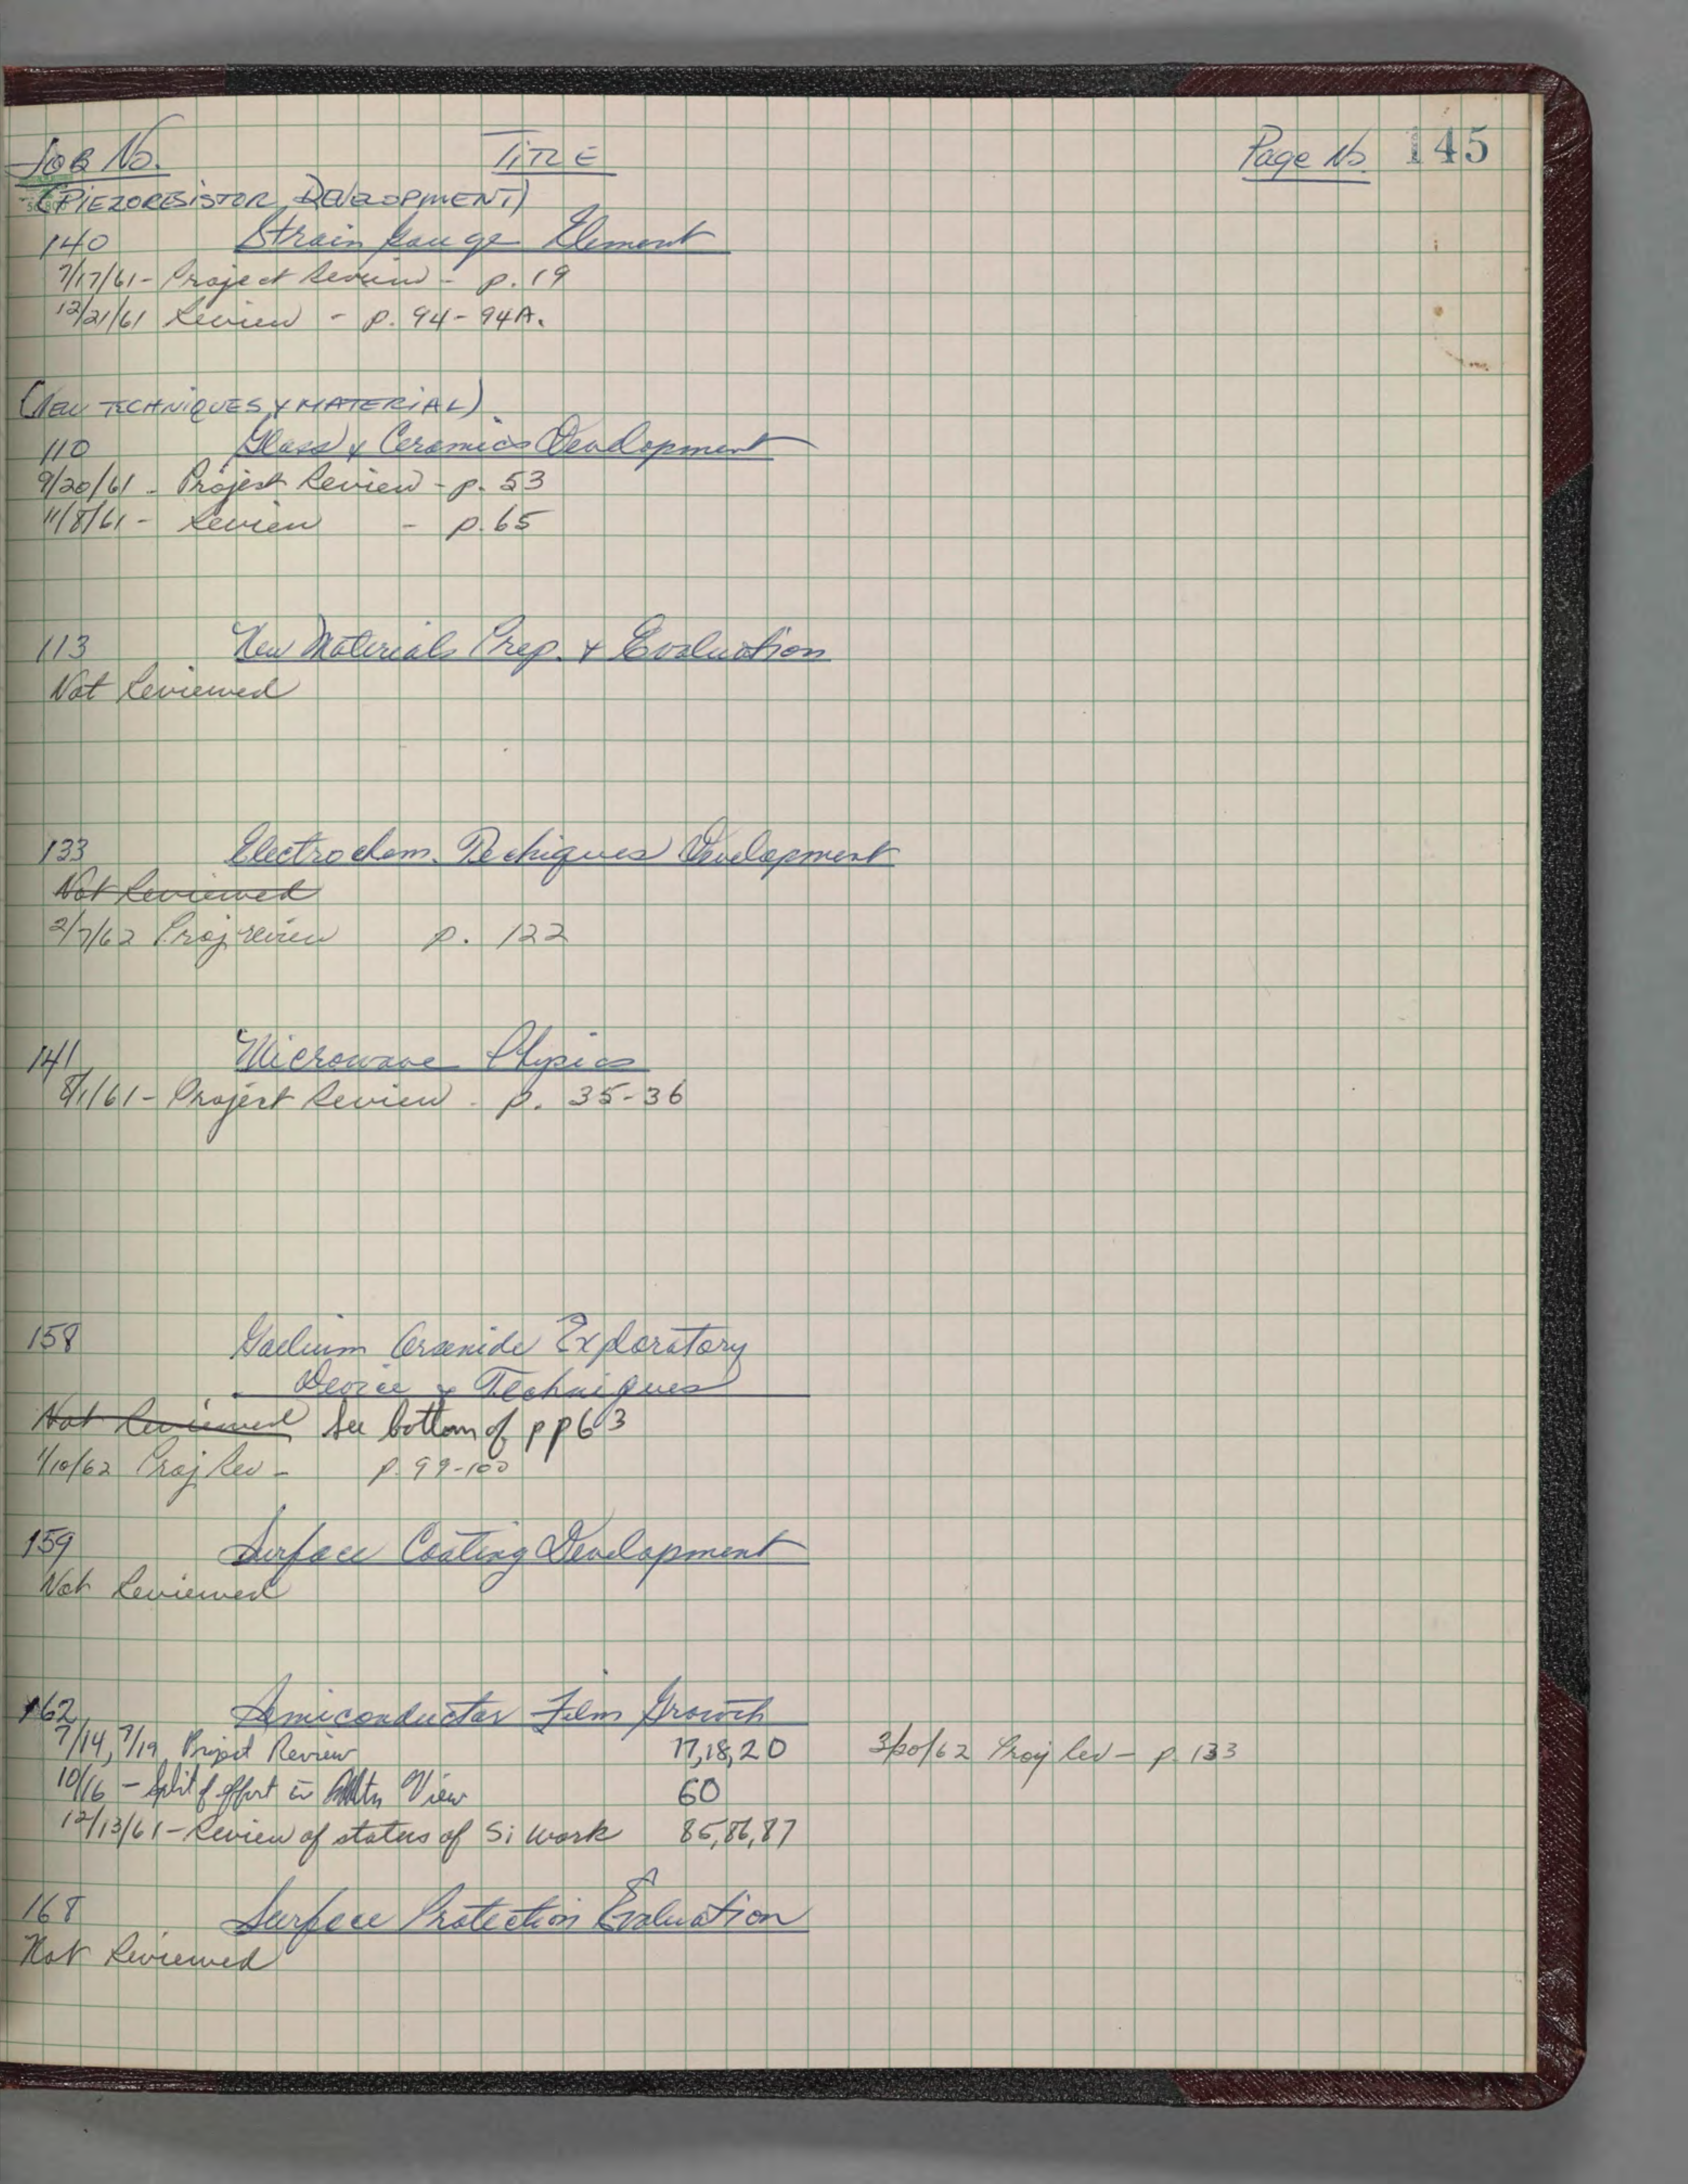 Job No. TITLE Page No. 145
(PIEZORESISTOR DEVELOPMENT)
140 Strain Gauge Element
7/17/61 - Project Review - p. 19
12/21/61 Review - p. 94-94A.
(NEW TECHNIQUES & MATERIAL)
110 Glass & Ceramics Development
9/20/61 - Project Review - p. 53
11/8/61 - Review - p. 65
113 New Materials Prep. & Evaluation
Not Reviewed
133 Electrochem. Techiques Development
Not Reviewed
2/7/62 Proj review p. 122
141 Microwave Physics
8/1/61 - Project Review - p. 35-36
158 Gallium Arsenide Exploratory
Device & Techniques
Not Reviewed See bottom of pp 63
1/10/62 Proj Rev - p. 99-100
159 Surface Coating Development
Not Reviewed
162 Semiconductor Film Growth
7/14, 7/19 Project Review 17,18,20 3/20/62 Proj Rev - p. 133
10/16 - Split of effort Mtn View 60
12/13/61 - Review of status of Si work 85,86,87
168 Surface Protection Evaluation
Not Reviewed